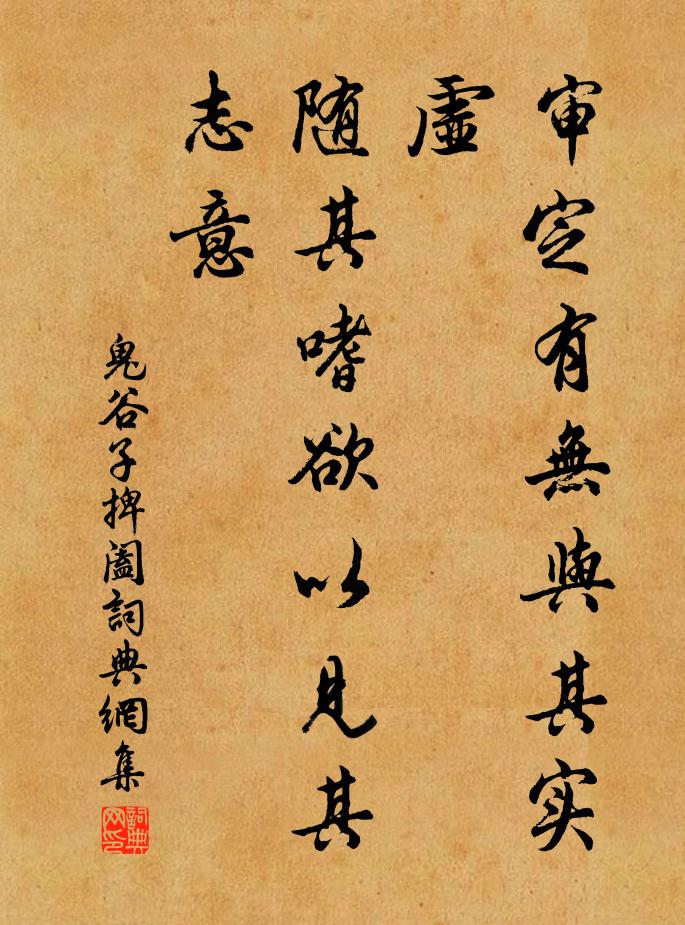 审定有無與其实
虛
随其嗜欲以見其
志意
鬼谷子捭阖詞典網集
詞典网印